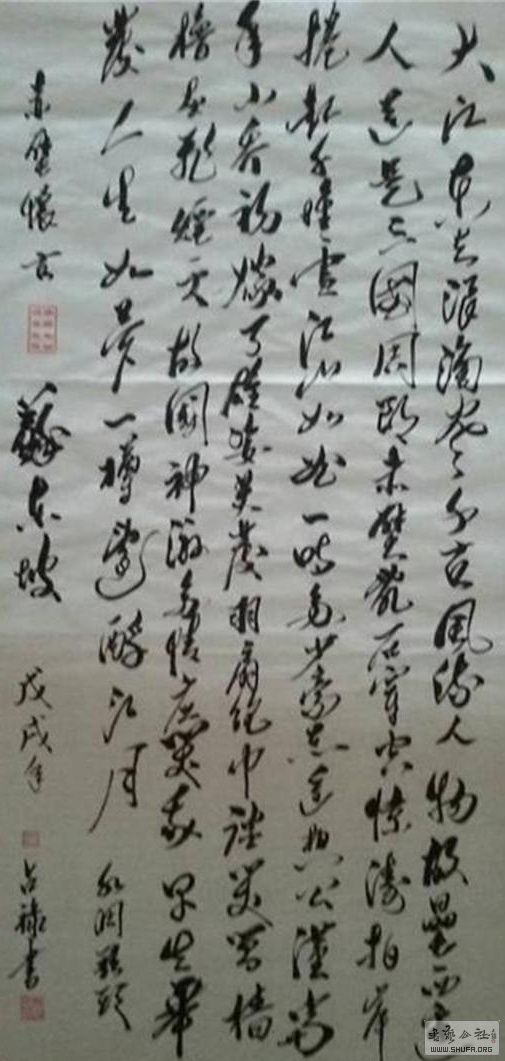 大江東去浪淘尽千古風流人物故壘西邊
人道是三國周郎赤壁亂石穿空驚濤拍岸
捲起千堆雪江山如畫一時多少豪杰遥想公瑾當
年小喬初嫁了雄姿英發羽扇綸巾談笑間檣
櫓灰飛煙滅故國神游多情應笑我早生華
發人生如夢一樽還酹江月
赤壁懷古 蘇東坡 戊戌年 占禄書
WWW.SHUFA.ORG